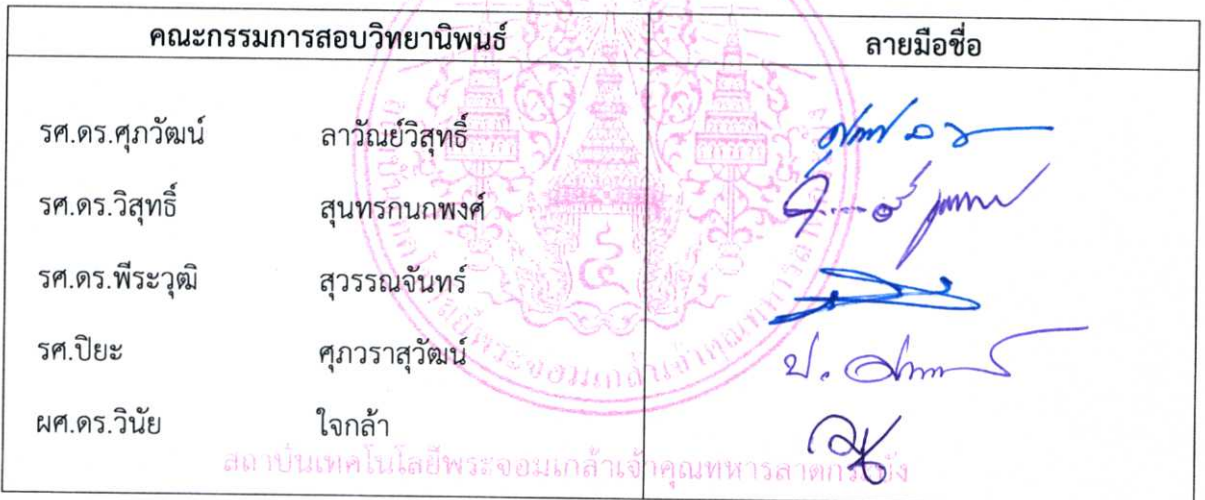 คณะกรรมการสอบวิทยานิพนธ์ ลายมือชื่อ
รศ.ดร.ศุภวัฒน์ ลาวัณย์วิสุทธิ์
รศ.ดร.วิสุทธิ์ สุนทรกนกพงศ์
รศ.ดร.พีระวุฒิ สุวรรณจันทร์
รศ.ปิยะ ศุภวราสุวัฒน์
ผศ.ดร.วินัย ใจกล้า
สถาบันเทคโนโลยีพระจอมเกล้าเจ้าคุณทหารลาดกระบัง